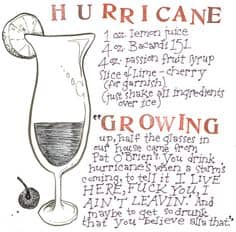 HURRICANE
1 oz. lemon juice
4 oz. Bacardi 151
4 oz. passion fruit syrup
Slice of lime - cherry
(for garnish)
(just shake all ingredients
over ice)
"GROWING
up, half the glasses in
our house came from
Pat O'Brien's. You drink
hurricanes when a storm's
coming, to tell it 'I LIVE
HERE, FUCK YOU, I
AIN'T LEAVIN.' And
maybe to get so drunk
that you believe all that."